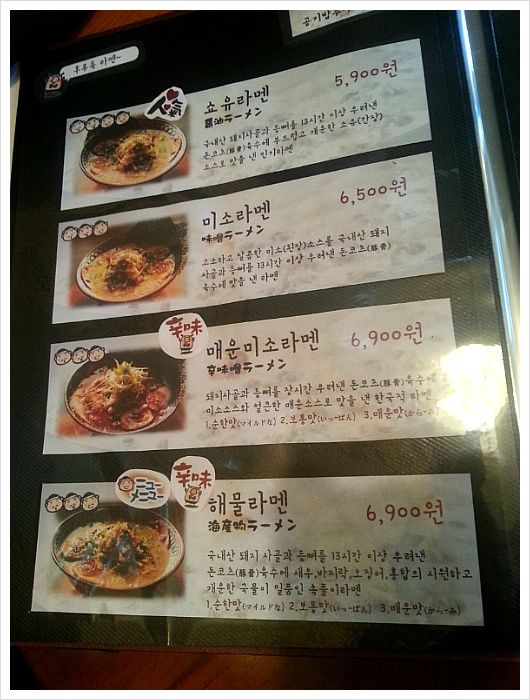 공기밥
후루룩 라멘~
人気
쇼유라멘
5,900원
醤油ラーメン
국내산 돼지사골과 등뼈를 13시간 이상 우려낸
돈코츠(豚骨)육수에 부드럽고 개운한 쇼유(간장)
소스로 맛을 낸 인기라멘
미소라멘
6,500원
味噌ラーメン
고소하고 달콤한 미소(된장)소스를 국내산 돼지
사골과 등뼈를 13시간 이상 우려낸 돈코츠(豚骨)
육수에 맛을 낸 라멘
辛味
매운미소라멘
6,900원
辛味噌ラーメン
돼지사골과 등뼈를 장시간 우려낸 돈코츠(豚骨)육수에
미소소스와 얼큰한 매운소스로 맛을 낸 한국적 라멘
1.순한맛(マイルドな) 2.보통맛(いっぱん) 3.매운맛(から-み)
ニュー
メニュー
辛味
해물라멘
6,900원
海産物ラーメン
국내산 돼지 사골과 등뼈를 13시간 이상 우려낸
돈코츠(豚骨)육수에 새우,바지락,오징어,홍합의 시원하고
개운한 국물이 일품인 해물이라멘
1.순한맛(マイルドな) 2.보통맛(いっぱん) 3.매운맛(から-み)